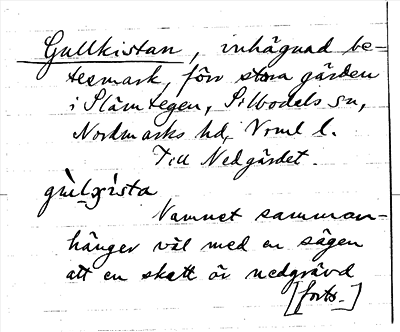 Gullkistan, inhägnad be-
tesmark, förr stora gärden
i Slämtegen, Silbodals sn,
Nordmarks hd, Vrml l.
Till Nedgärdet.
Namnet samman-
hänger väl med en sägen
att en skatt är nedgrävd
[forts.]